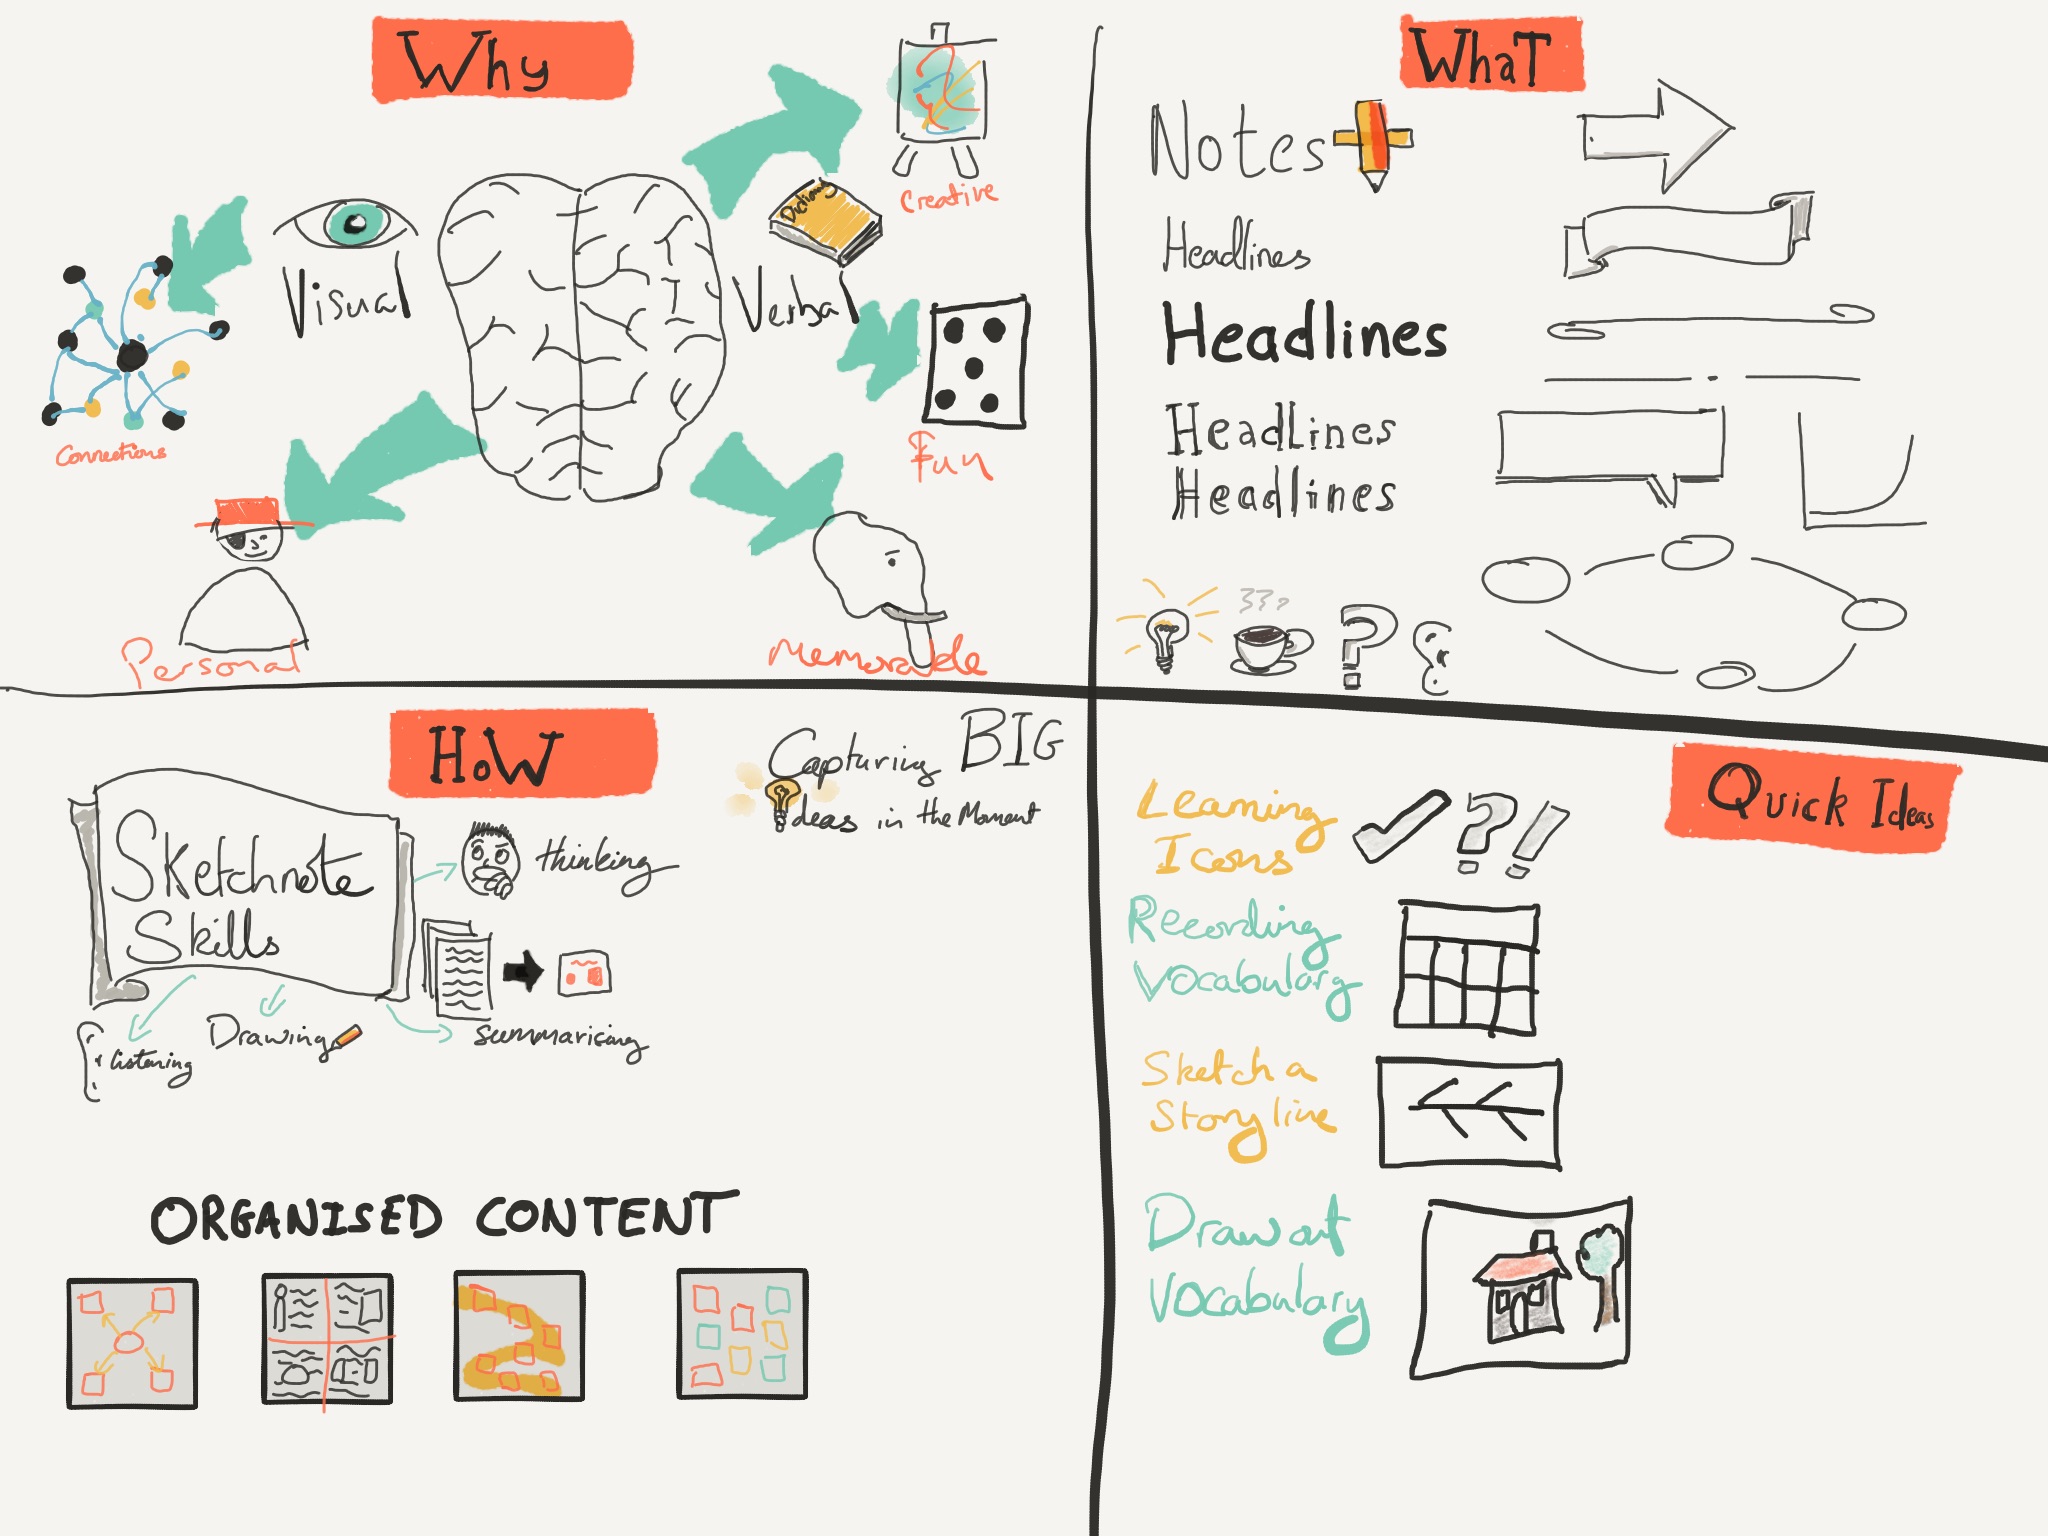 Why
Creative
Dictionary
Visual
Verbal
Connections
Fun
Personal
Memorable
WhaT
Notes
Headlines
Headlines
HeadLines
Headlines
HoW
Capturing BIG
Ideas in the Moment
Sketchnote
Skills
thinking
summarising
Drawing
listening
ORGANISED CONTENT
Quick Ideas
Learning
Icons
Recording
Vocabulary
Sketch a
Story line
Draw out
Vocabulary